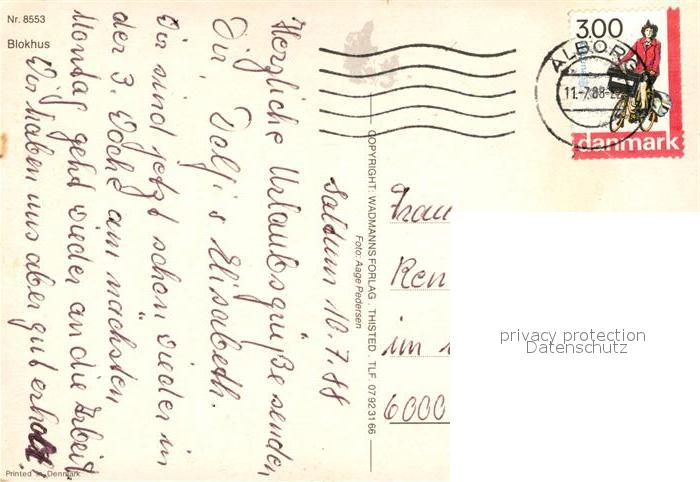 Nr. 8553
Blokhus
Saltum 10.7.88
Herzliche Urlaubsgrüße senden
Dir, Dolf u Elisabeth.
Wir sind jetzt schon wieder in
der 3. Woche am nächsten
Montag geht wieder an die Arbeit
Wir haben uns aber gut erholt.
Printed in Denmark
COPYRIGHT: WADMANNS FORLAG . THISTED . TLF. 07923166
Foto: Aage Pedersen
3.00
ALBORG
11.-7.88-
danmark
Frau
Ren
im
6000
privacy protection
Datenschutz